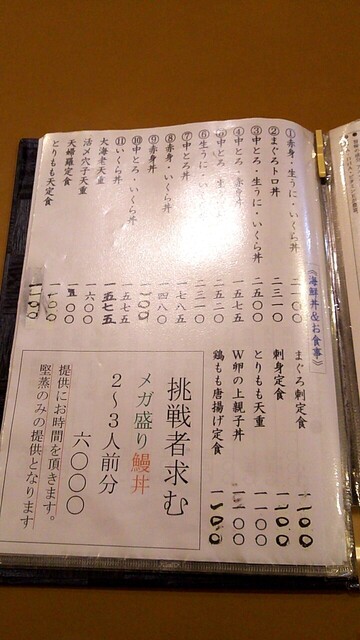 《海鮮丼&お食事》
①赤身・生うに・いくら丼 二一〇〇
②まぐろトロ丼 二三一〇
③中とろ・生うに・いくら丼 二五〇〇
④中とろ・赤身丼 一五七五
⑤中とろ・生うに 二一〇〇
⑥生うに・いくら 二三一〇
⑦中とろ丼 一七八五
⑧赤身・いくら丼 一四八〇
⑨赤身丼
⑩中とろ・いくら丼 一五七五
⑪いくら丼 一五七五
大海老天重
活〆穴子天重 一六〇〇
天婦羅定食
とりもも天定食 一一〇〇
まぐろ刺定食
刺身定食
とりもも天重 一一〇〇
W卵の上親子丼
鶏もも唐揚げ定食
挑戦者求む
メガ盛り鰻丼
2～3人前分
六〇〇〇
提供にお時間を頂きます。
堅蒸のみの提供となります